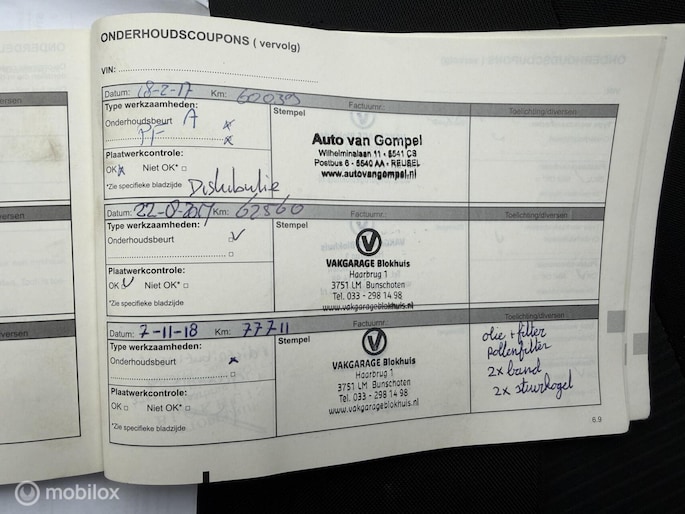 ONDERHOUDSCOUPONS ( vervolg)
VIN:
Datum: 18-2-17 Km: 60039 Factuurnr. Toelichting/diversen
Type werkzaamheden:
Onderhoudsbeurt A x
PF x
Plaatwerkcontrole:
OK x Niet OK* □
*Zie specifieke bladzijde
Distributie
Stempel
Auto van Gompel
Wilhelminalaan 11 • 5541 CS
Postbus 6 • 5540 AA • REUSEL
www.autovangompel.nl
Datum: 22-8-2017 Km: 62560 Factuurnr. Toelichting/diversen
Type werkzaamheden:
Onderhoudsbeurt □
□
Plaatwerkcontrole:
OK □ Niet OK* □
*Zie specifieke bladzijde
Stempel
V
VAKGARAGE Blokhuis
Haarbrug 1
3751 LM Bunschoten
Tel. 033 - 298 14 98
www.vakgarageblokhuis.nl
Datum: 7-11-18 Km: 77711 Factuurnr. Toelichting/diversen
Type werkzaamheden:
Onderhoudsbeurt x
□
Plaatwerkcontrole:
OK □ Niet OK* □
*Zie specifieke bladzijde
Stempel
V
VAKGARAGE Blokhuis
Haarbrug 1
3751 LM Bunschoten
Tel. 033 - 298 14 98
www.vakgarageblokhuis.nl
olie + filter
pollenfilter
2x band
2x stuurkogel
6.9
mobilox